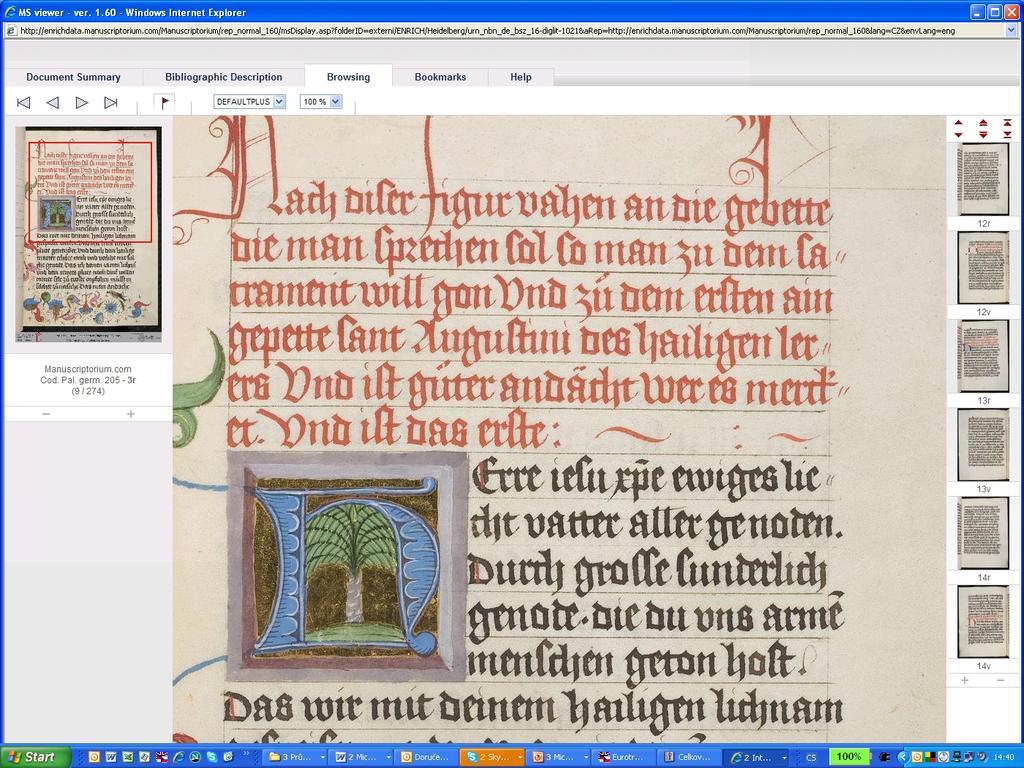 MS viewer - ver. 1.60 - Windows Internet Explorer
http://enrichdata.manuscriptorium.com/Manuscriptorium/rep_normal_160/msDisplay.asp?folderID=externi/ENRICH/Heidelberg/urn_nbn_de_bsz_16-diglit-1021&aRep=http://enrichdata.manuscriptorium.com/Manuscriptorium/rep_normal_160&lang=CZ&envLang=eng
Document Summary Bibliographic Description Browsing Bookmarks Help
DEFAULTPLUS 100 %
Manuscriptorium.com
Cod. Pal. germ. 205 - 3r
(9 / 274)
Nach diser figur vahen an die gebette
die man sprechen sol so man zu dem sa//
crament will gon Vnd zů dem ersten ain
gepette sant Augustini des hailigen ler//
ers Vnd ist gůter andächt wer es merck//
et. Vnd ist das erste:
Erre iesu xp̄e ewiges lie//
cht vatter aller genoden.
Durch grosse sunderlich
genode. die du vns armē
menschen geton host.
Das wir mit deinem hailigen lichnam
12r
12v
13r
13v
14r
14v
Start 3 Prů... 2 Mic... Doruče... 2 Sky... 3 Mic... Eurotr... Celkov... 2 Int... CS 100% 14:40